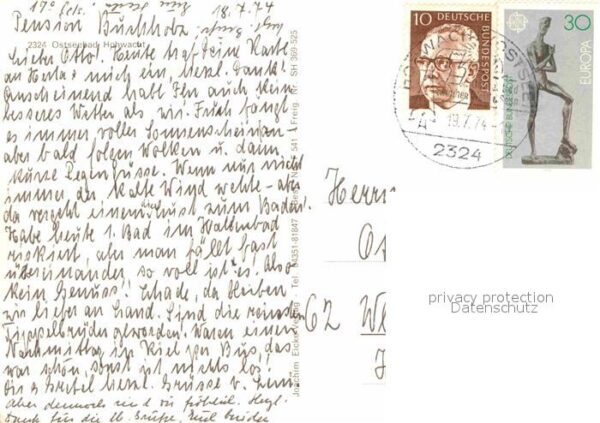 18.7.74
Pension Buchholz
2324 Ostseebad Hohwacht
Lieber Otto! Heute traf Deine Karte
an Herta + mich ein, herzl. Dank!
Anscheinend habt Ihr auch kein
besseres Wetter als wir. Früh fängt
es immer voller Sonnenschein an
aber bald folgen Wolken u. dann
kurze Regengüsse. Wenn nur nicht
immer der kalte Wind wehte - aber
da vergeht einem die Lust zum Baden.
Habe heute 1. Bad im Hallenbad
riskiert, aber man fällt fast
übereinander so voll ist es. Also
kein Genuss! Schade, da bleiben
wir lieber an Land. Sind die reinsten
Tippelbrüder geworden. Waren einen
Nachmittag in Kiel per Bus, das
war schön, sonst ist nichts los!
herzl. Grüsse v.
Aber dennoch sind wir fröhlich. Herzl.
Dank für die lb. Grüße.
Joachim Eicke Verlag - Tel. 04351-81847
Freig. Nr. SH 369-525
Herrn
62
10 DEUTSCHE
BUNDESPOST
30
EUROPA
DEUTSCHE BUNDESPOST
HOHWACHT OSTSEE
18.7.74
2324
privacy protection
Datenschutz